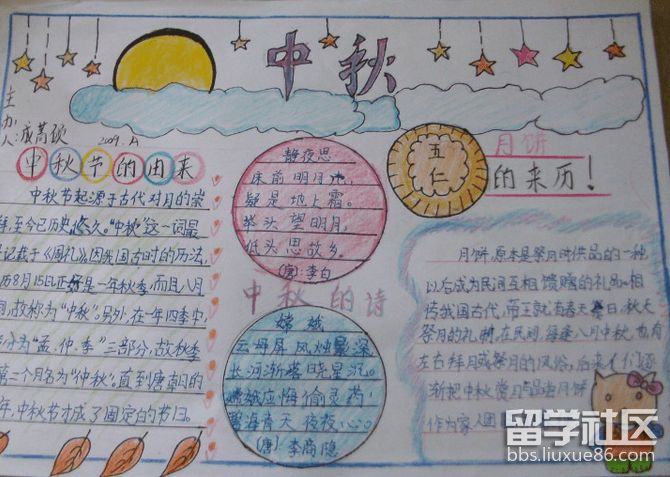 中秋
主办人:
2009.
中秋节的由来
中秋节起源于古代对月的崇
拜,至今已历史悠久。"中秋"这一词最
记载于《周礼》,因我国古时的历法,
历8月15日正是一年秋季,而且八月
间,故称为"中秋",另外,在一年四季中,
分为"孟、仲、季"三部分,故秋季
第二个月名为"仲秋",直到唐朝的
年,中秋节才成了固定的节日。
静夜思
床前明月光,
疑是地上霜。
举头望明月,
低头思故乡。
(唐):李白
中秋的诗
嫦娥
云母屏风烛影深,
长河渐落晓星沉。
嫦娥应悔偷灵药,
碧海青天夜夜心。
(唐):李商隐
五仁
月饼
的来历!
月饼,原本是祭月时供品的一种,
以后成为民间互相馈赠的礼品。相
传我国古代,帝王就有春天祭日,秋天
祭月的礼制,在民间,每逢八月中秋,也有
左右拜月或祭月的风俗,后来人们逐
渐把中秋赏月与品尝月饼
作为家人团
留学社区
bbs.liuxue86.com